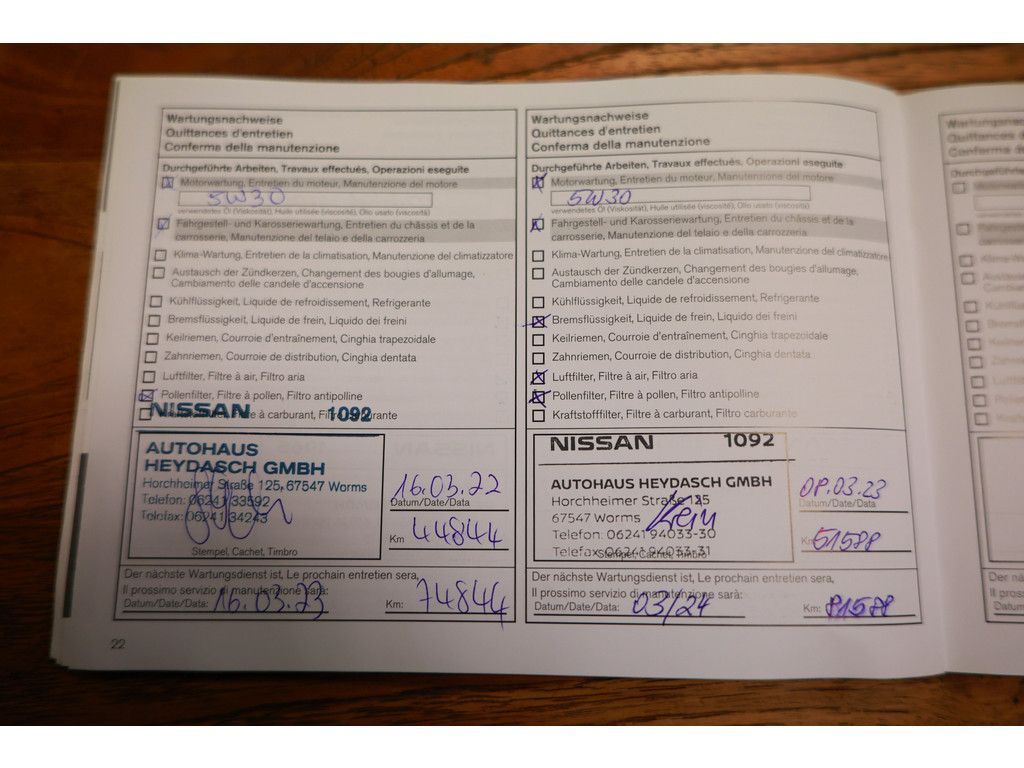 Wartungsnachweise
Quittances d'entretien
Conferma della manutenzione
Durchgeführte Arbeiten, Travaux effectués, Operazioni eseguite
Motorwartung, Entretien du moteur, Manutenzione del motore
5W30
verwendetes Öl (Viskosität), Huile utilisée (viscosité), Olio usato (viscosità)
Fahrgestell- und Karosseriewartung, Entretien du châssis et de la
carrosserie, Manutenzione del telaio e della carrozzeria
Klima-Wartung, Entretien de la climatisation, Manutenzione del climatizzatore
Austausch der Zündkerzen, Changement des bougies d'allumage,
Cambiamento delle candele d'accensione
Kühlflüssigkeit, Liquide de refroidissement, Refrigerante
Bremsflüssigkeit, Liquide de frein, Liquido dei freini
Keilriemen, Courroie d'entraînement, Cinghia trapezoidale
Zahnriemen, Courroie de distribution, Cinghia dentata
Luftfilter, Filtre à air, Filtro aria
Pollenfilter, Filtre à pollen, Filtro antipolline
NISSAN 1092
AUTOHAUS
HEYDASCH GMBH
Horchheimer Straße 125, 67547 Worms
Telefon: 06241 33592
Telefax: 06241 34243
Stempel, Cachet, Timbro
16.03.22
Datum/Date/Data
Km 44844
Der nächste Wartungsdienst ist, Le prochain entretien sera,
Il prossimo servizio di manutenzione sarà:
Datum/Date/Data: 16.03.23 Km: 74844
22
Wartungsnachweise
Quittances d'entretien
Conferma della manutenzione
Durchgeführte Arbeiten, Travaux effectués, Operazioni eseguite
Motorwartung, Entretien du moteur, Manutenzione del motore
5W30
verwendetes Öl (Viskosität), Huile utilisée (viscosité), Olio usato (viscosità)
Fahrgestell- und Karosseriewartung, Entretien du châssis et de la
carrosserie, Manutenzione del telaio e della carrozzeria
Klima-Wartung, Entretien de la climatisation, Manutenzione del climatizzatore
Austausch der Zündkerzen, Changement des bougies d'allumage,
Cambiamento delle candele d'accensione
Kühlflüssigkeit, Liquide de refroidissement, Refrigerante
Bremsflüssigkeit, Liquide de frein, Liquido dei freini
Keilriemen, Courroie d'entraînement, Cinghia trapezoidale
Zahnriemen, Courroie de distribution, Cinghia dentata
Luftfilter, Filtre à air, Filtro aria
Pollenfilter, Filtre à pollen, Filtro antipolline
Kraftstofffilter, Filtre à carburant, Filtro carburante
NISSAN 1092
AUTOHAUS HEYDASCH GMBH
Horchheimer Straße 125
67547 Worms
Telefon: 06241 94033-30
Telefax: 06241 94033-31
Stempel, Cachet, Timbro
08.03.23
Datum/Date/Data
Km 51588
Der nächste Wartungsdienst ist, Le prochain entretien sera,
Il prossimo servizio di manutenzione sarà:
Datum/Date/Data: 03/24 Km: 81588